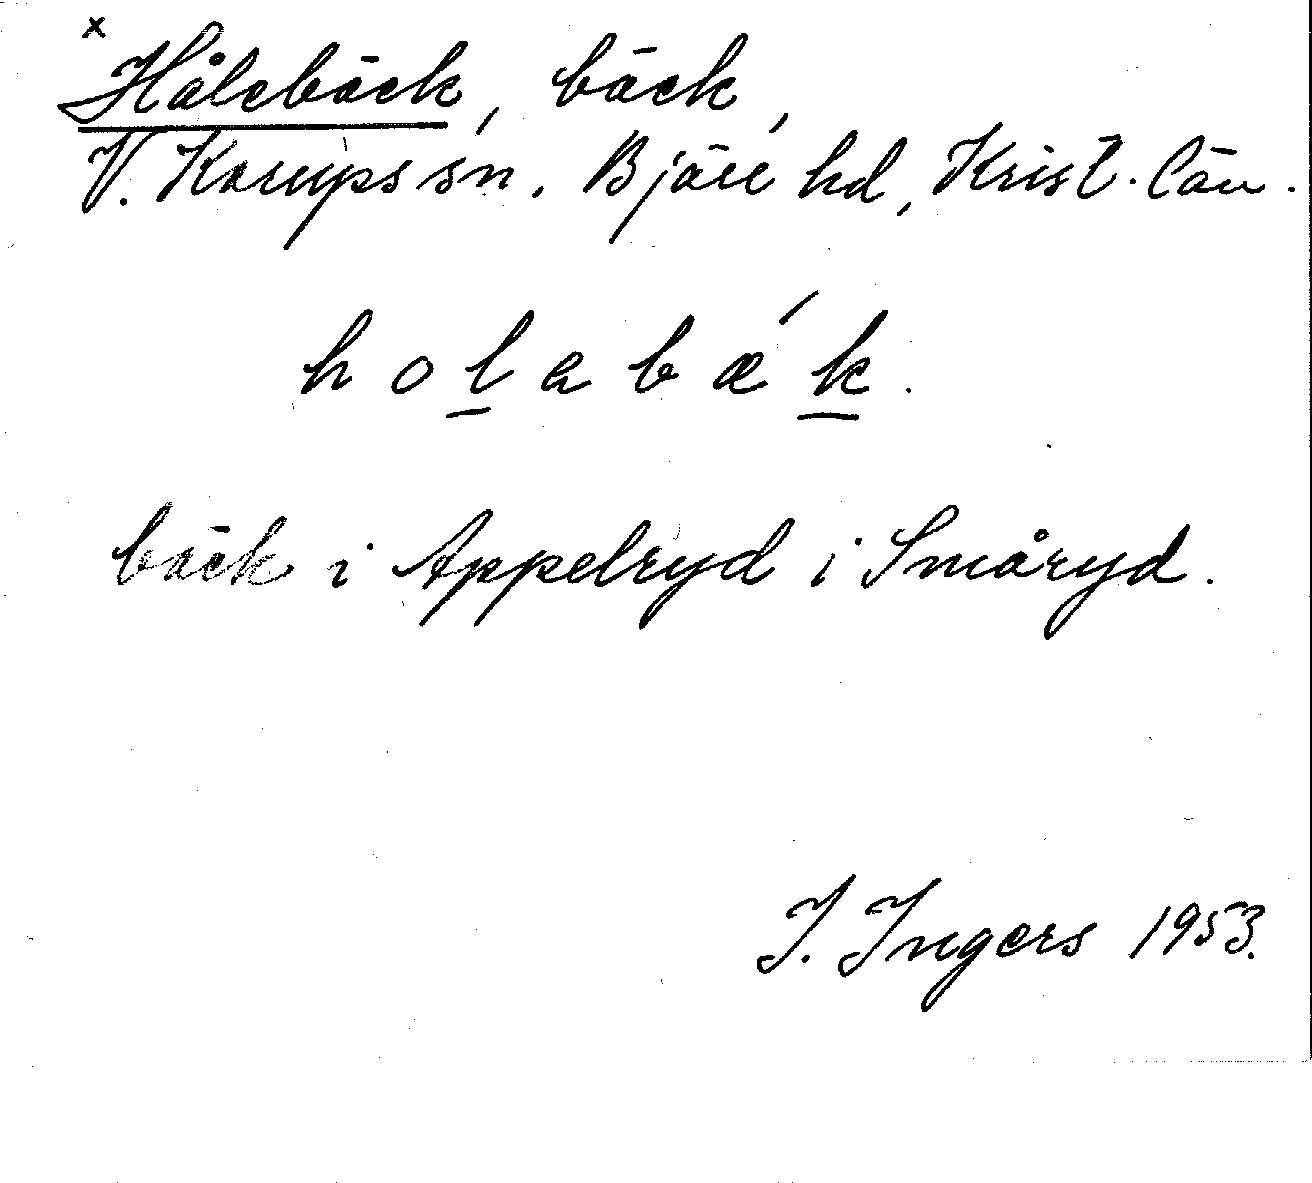 x
Hålebäck, bäck,
V. Karups sn. Bjäre hd, Krist. län.
holabæ´k.
bäck i Appelryd i Småryd.
I. Ingers 1953.